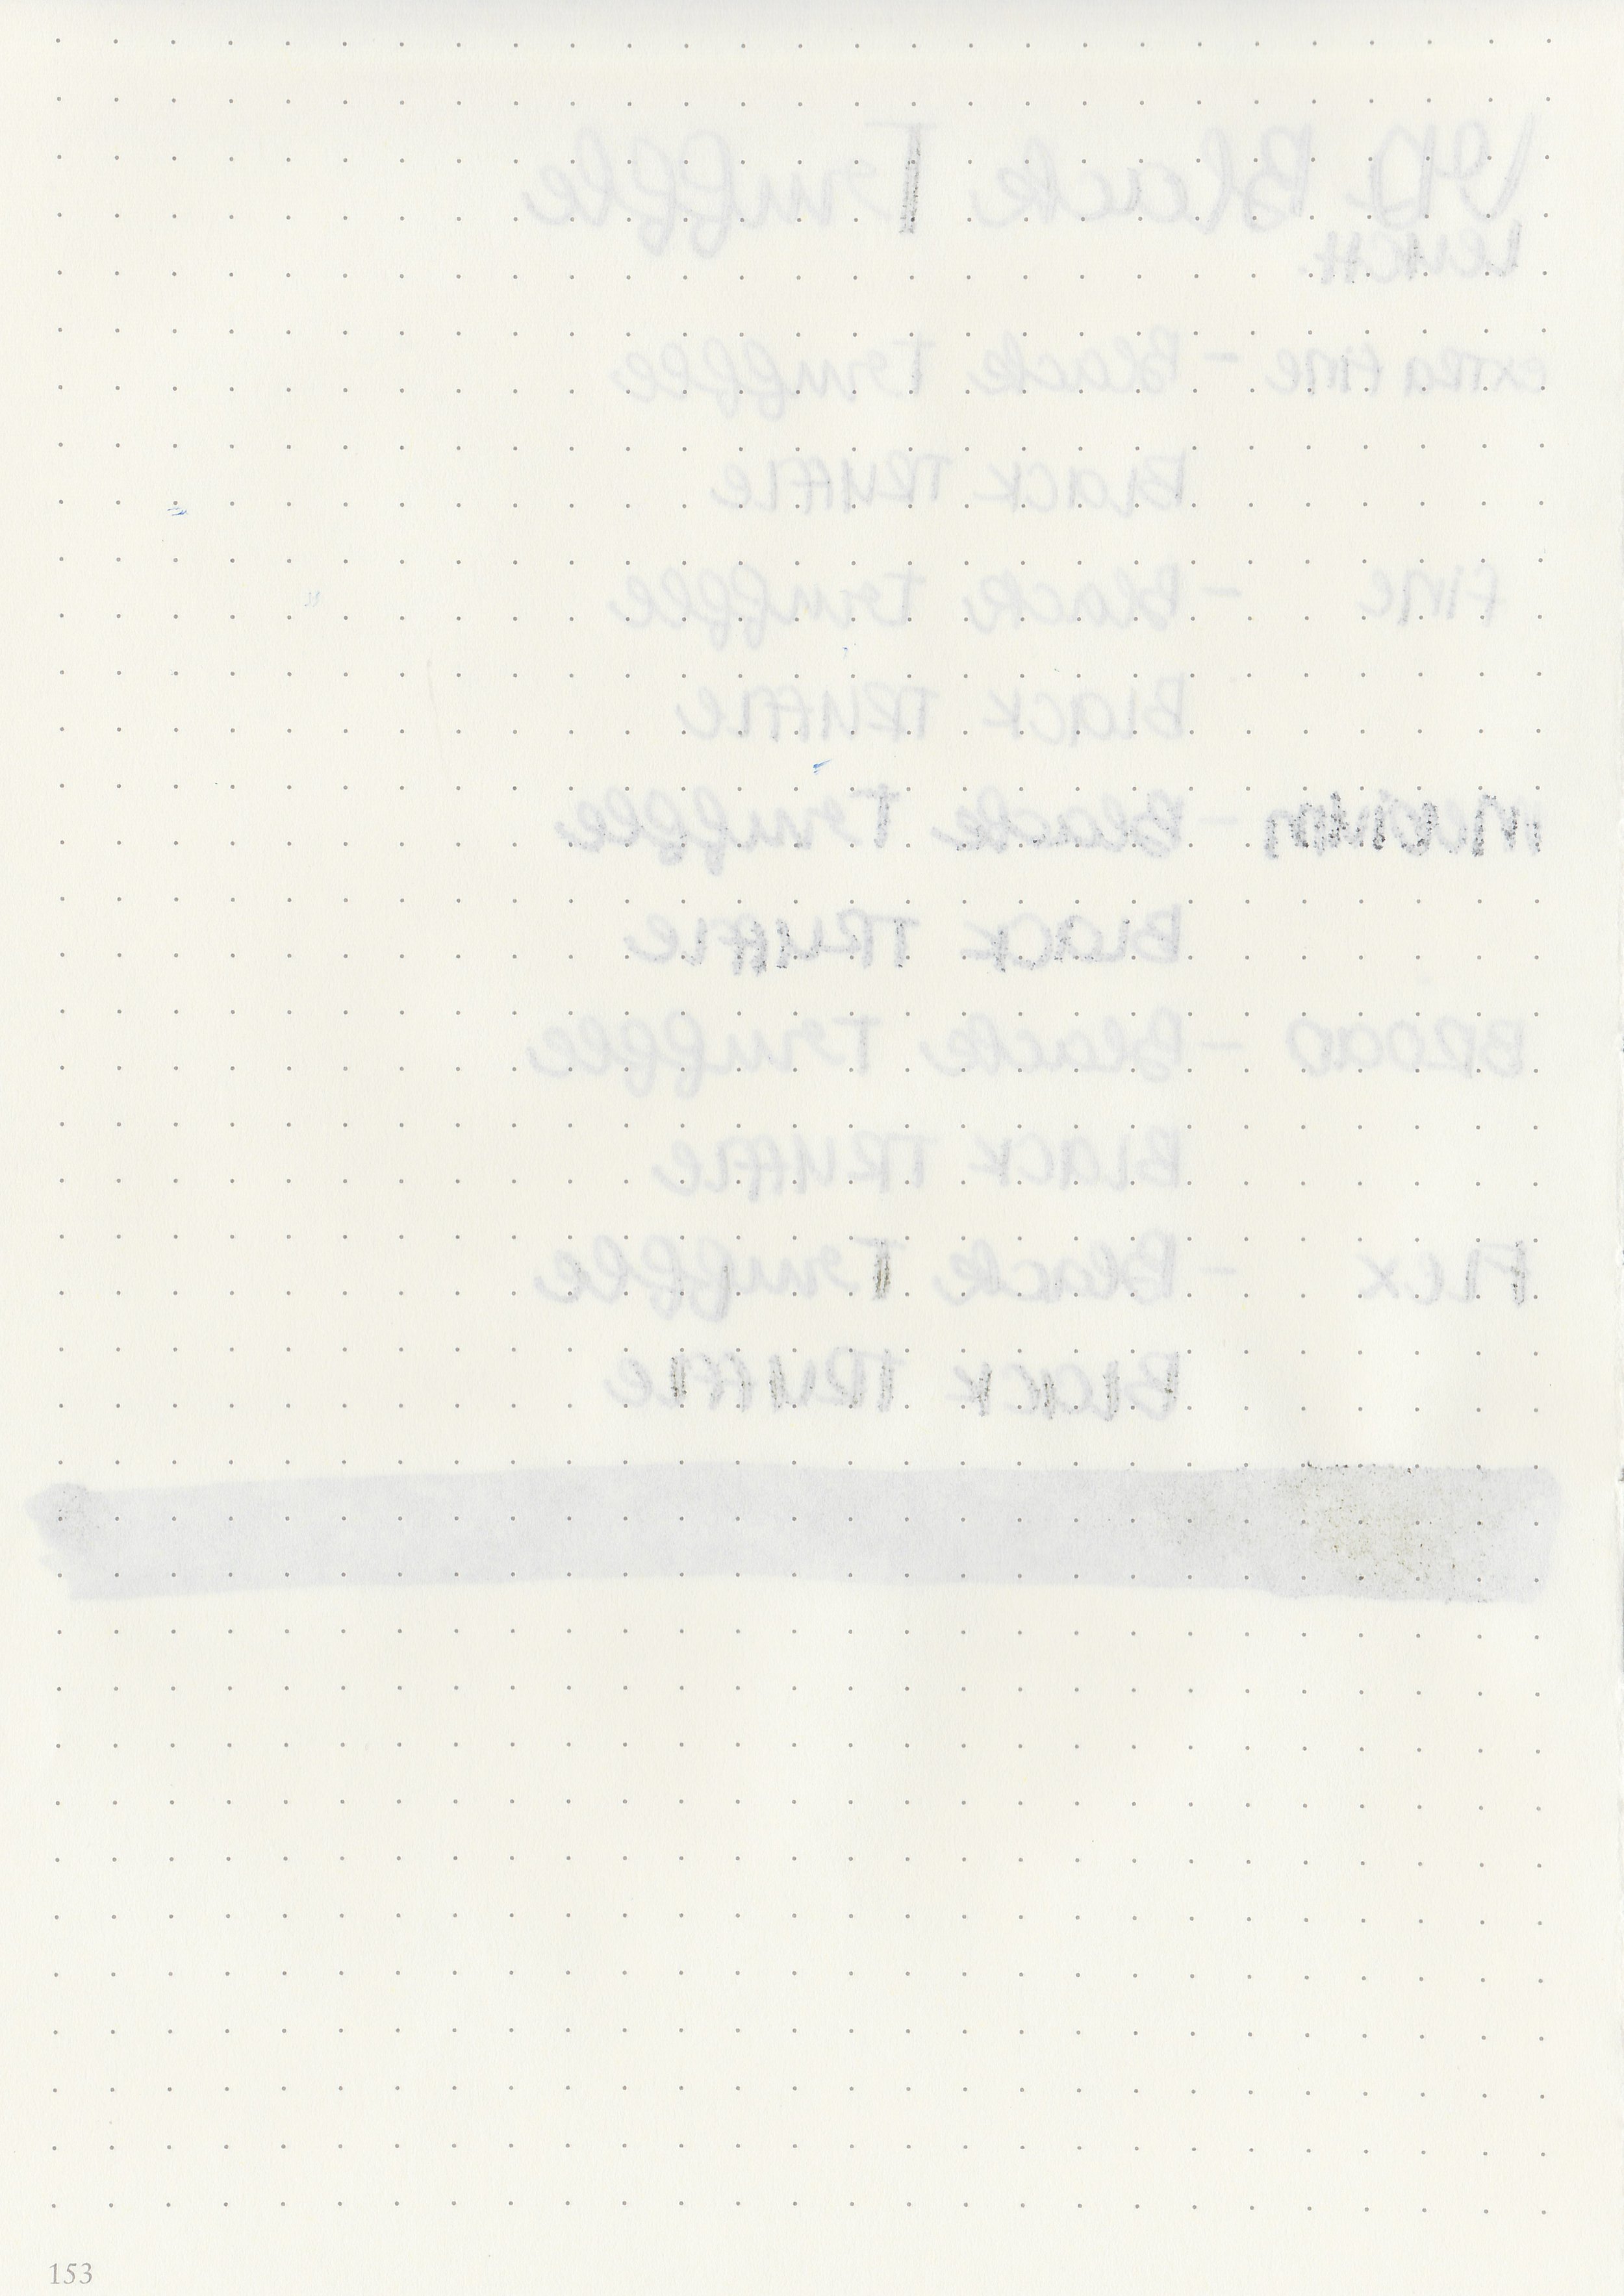 VD Black Truffle
Leuch
extra fine - Black Truffle
Black Truffle
fine - Black Truffle
Black Truffle
Medium - Black Truffle
Black Truffle
Broad - Black Truffle
Black Truffle
Flex - Black Truffle
Black Truffle
153